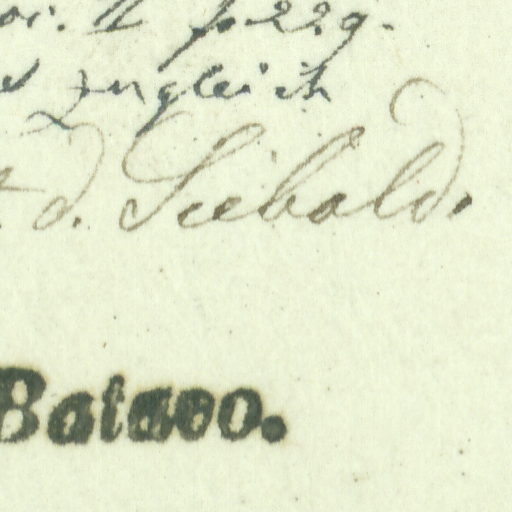 II p 229.
zugleich
d. Siebold.
Batavo.